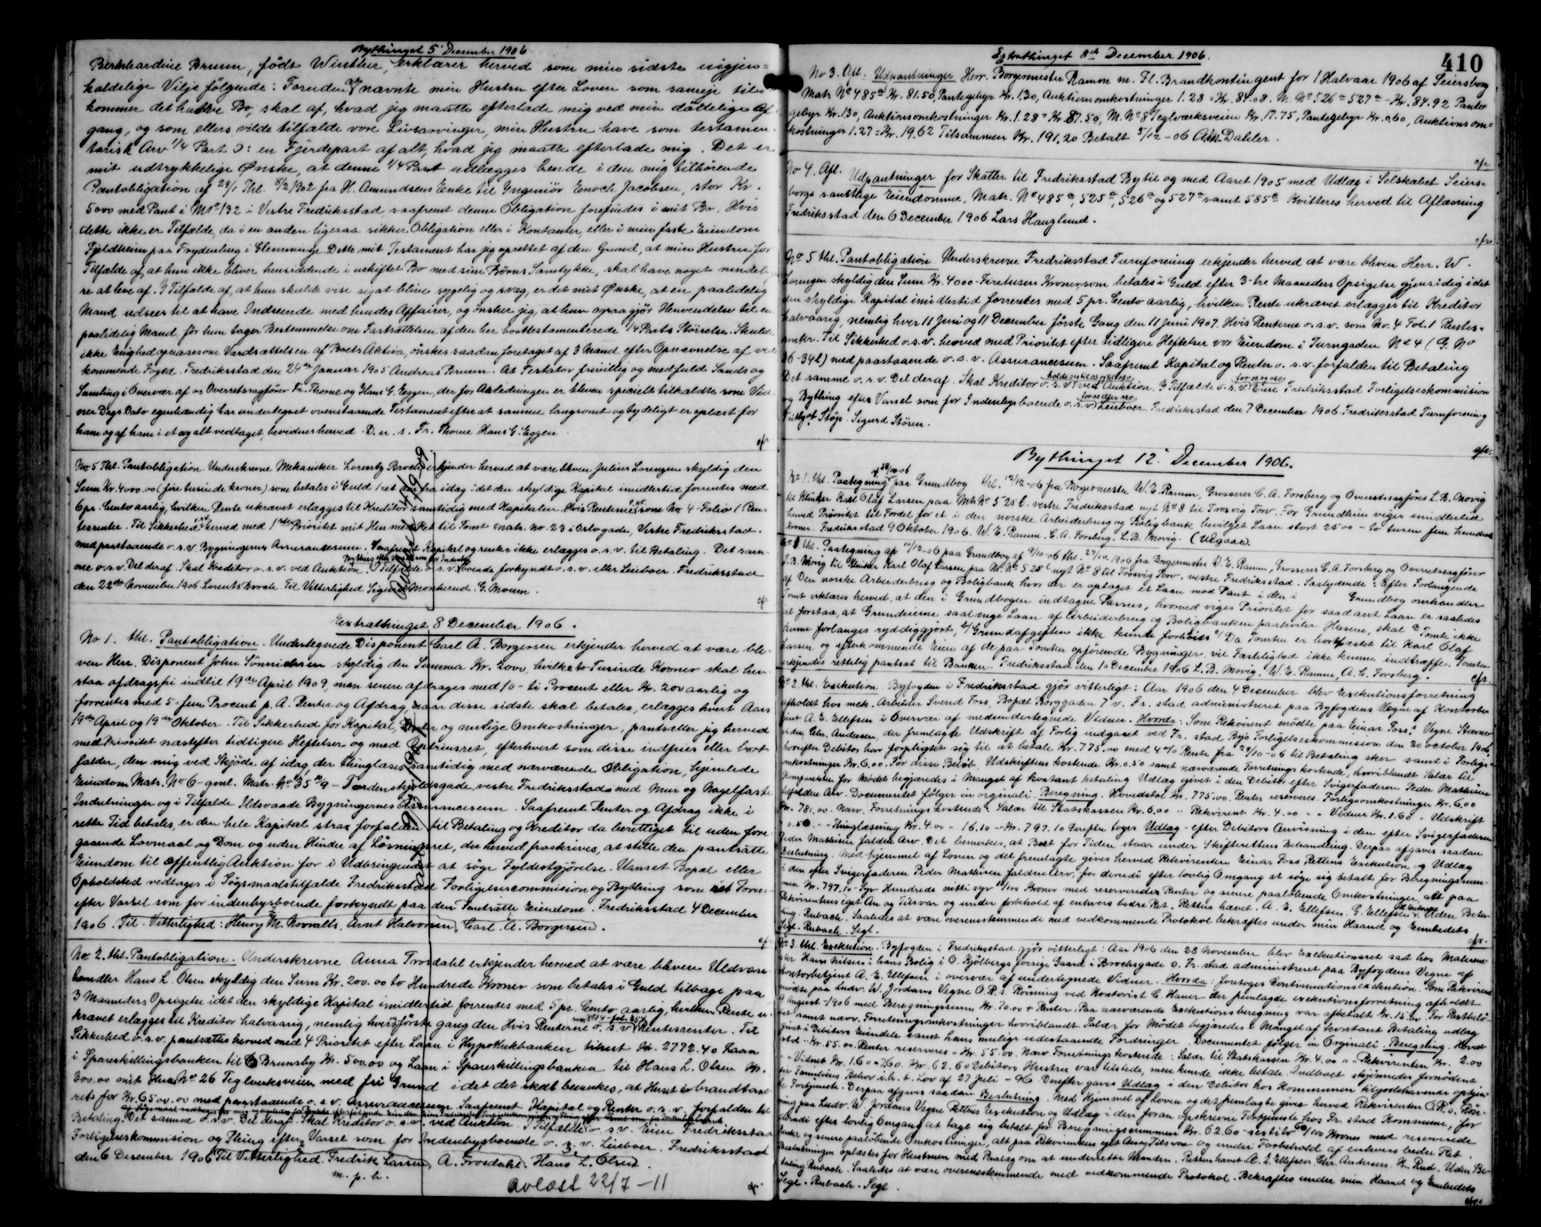 Bythinget 5' December 1906
Bernhardine Bruun, föds Winther, erklærer herved som min sidste uigjen-
kaldelige Vilje følgende: Foruden nævnte min Hustru efter Loven som sameje tilo-
kommer det halve Bo, skal af, hvad jeg maatte efterlade mig ved min dødelige Af
gang, og som ellers vilde tilfalde vore Livsarvinger, min Hustru have som testamen-
tarisk Arv 1/4 Part ɔ: en Fjerdepart af alt, hvad jeg maatte efterlade mig. Det er
mit udtrykkelige Ønske, at denne 1/4 Part udlægges hende i den mig tilhørende
Pantobligation af thl. 1902 fra H. Amundsens Enke til Ingeniör Enoch Jacobsen, stor Kr.
5000 med Pant i Mno 132 i Vestre Fredriksstad saafremt denne Obligation forefindes i mit Bo. Hvis
dette ikke er Tilfælde, da i en anden ligesaa sikker Obligation eller i Kontanter eller i min faste Eiendom
Fjeldheim paa Frydenberg i Glemminge. Dette mit Testament har jeg oprettet af den Grund, at min Hustru for
Tilfælde af, at hun ikke bliver hensiddende i uskiftet Bo med sine Børns Samtykke, skal have noget mindre
re at leve af. I Tilfælde af, at hun skulde vise sig at blive sygelig og svag, er det mit Ønske, at en paalidelig
Mand udsees til at have Indseende med hendes Affairer, og ønsker jeg, at hun ogsaa gjör Henvendelse til en
paalidelig Mand, för hun tager Bestemmelse om Fastsættelsen af den her borttestamenterede 1/4 Parts Størrelse. Skulde
ikke Enighed opnaaes om Værdsættelsen af Boets Aktiva, ønskes saadan foretaget af 3 Mænd efter Opnævnelse af ved
kommende Foged. Fredriksstad den 24de Januar 1905 Andreas Bruun. At Testator frivillig og med fuld Sands og
Samling i Overvær af os Overretssagfører Fr. Thorne og Hans G. Eggen, der for Anledningen er bleven specielt tilkaldte som Vid-
ner Dags Dato egenhændig har undertegnet ovenstaaende Testament efter at samme langsomt og tydeligt er oplæst for
ham og af ham i et og alt vedtaget, bevidnes herved. D. u. s. Fr. Thorne Hans G. Eggen
No 5 thl. Pantobligation. Underskrevne Mekaniker Lorentz Broch erkjender herved at være bleven Julius Lorenzen skyldig den
Sum Kr. 4000.00 (fire tusinde kroner) som betales i Guld 1 et aar fra idag idet den skyldige Kapital imidlertid forrentes med
6 pr. Cento aarlig, hvilken Rente ukrævet erlægges til Kreditor samtidig med Kapitalen. Hvis Renterne o.s.v. som No 4 Folio 1 Ren-
tesrenter. Til Sikkerhed o.s.v. herved med 1ste Prioritet mit Hus med Ret til Tomt Matr. no. 28 i Orlogade, Vestre Fredriksstad
med paastaaende o.s.v. Bygningernes Assurancesum. Saafremt Kapital og renter ikke erlægges o.s.v. til Betaling. Det sam-
me o.s.v. Del deraf. Skal Kreditor o.s.v. ved Auktion. I Tilfælde o.s.v. boende forkyndt o.s.v. eller Leieboer. Fredriksstad
den 22de November 1906 Lorents Broch. Til Vitterlighed Sigurd Monkerud. G. Moum.
Extrathinget 8 December 1906.
No 1. thl. Pantobligation. Undertegnede Disponent Carl A. Borgersen erkjender herved at være ble-
ven Herr. Disponent John Sönnichsen skyldig den Summa Kr. 2000, hvilke to Tusinde Kroner skal hen-
staa afdragsfri indtil 19de April 1909, men senere afdrages med 10 - ti Procent eller Kr. 200 aarlig og
forrentes med 5 - fem Procent p. A. Renter og Afdrag, naar disse sidste skal betales, erlægges hvert Aars
19de April og 19de Oktober. Til Sikkerhed for Kapital, Renter og mulige Omkostninger, pantsætter jeg herved
med Prioritet næstefter tidligere Heftelser og med Opröknings ret, efterhvert som disse indfries eller bort
falder, den mig ved Skjøde af idag der thinglæses samtidig med nærværende Obligation, tilhørende
Eiendom Matr. No 6 - gml. Matr. No 35 - Tordenskjoldsgade, vestre Fredriksstad med Mur og Nagelfast
Indretninger og i Tilfælde Ildsvaade Bygningernes Assurancesum. Saafremt Renter og Afdrag ikke i
rette Tid betales, er den hele Kapital strax forfalden til Betaling og Kreditor da berettiget til uden fore
gaaende Lovmaal og Dom og uden Hinder af Lösningsret, der herved fraskrives, at stille den pantsatte
Eiendom til Offentlig Auktion for i Udbringendet at søge Fyldestgjörelse. Uanset Bopæl eller
Opholdsted vedtages i Søgsmaalstilfælde Fredriksstad Forligelsescommission og Bything som ret Forum
efter Varsel som for indenbysboende forkyndt paa den Pantsatte Eiendom. Fredriksstad 4 December
1906. Til Vitterlighed: Henry M. Hovvalls, Arnt Halvorsen, Carl A. Borgersen.
No. 2. thl. Pantobligation. Underskrevne Anna Trosdahl erkjender herved at være bleven Uldvare
handler Hans L. Olsen skyldig den Sum Kr. 200.00 to Hundrede Kroner som betales i Guld tilbage paa
3 Maaneders Opsigelse idet den skyldige Kapital imidlertid forrentes med 5 pr. Cento aarlig, hvilken Rente u-
krævet erlægges til Kreditor halvaarig, nemlig hver første gang den Hvis Renterne o.s.v. Rentesrenter. Til
Sikkerhed o.s.v. pantsættes herved med 4 Prioritet efter Laan i Hypothekbanken tilrest Kr. 2772.40 Laan
i Spareskillingsbanken til Brunsby Kr. 500.00 og Laan i Spareskillingsbanken til Hans L. Olsen Kr.
300.00 mit Hus No 26 Teglverksveien med fri Grund idet det skal bemerkes, at Huset er brandtax
ret for Kr. 6500.00 med paastaaende o.s.v. Assurancesum. Saafremt Kapital og Renter o.s.v. forfalden til
Betaling. Det samme o.s.v. Del deraf. Skal Kreditor o.s.v. ved Auktion. I Tilfælde o.s.v. Eien Fredriksstad
Forligelseskommission og Thing efter Varsel som for Indenbysboende o.s.v. Leieboer. Fredriksstad
den 6 Desember 1906 Til Vitterlighed Fredrik Larsen, A. Trosdahl. Hans L. Olsen.
m. p. h.
Avlæst 22/7 - 11
Extrathinget 8de December 1906.
410
No 3. Afl: Udpantninger Herr. Borgermester Ramm m. Fl. Brandkontingent for 1 Halvaar 1906 af Seiersborg
Matr. No 485a Kr. 81.50, Pantegebyr Kr. 1.30, Auktionsomkostninger 1.28 = Kr. 84.08. M. No 526a 527a Kr. 84.92 Pante
gebyr Kr. 1.30, Auktionsomkostninger Kr. 1.28 = Kr. 87.50, M. No 8 Teglverksveien Kr. 17.75, Pantegebyr Kr. 0.60, Auktionsom-
kostninger 1.27 = Kr. 19.62 Tilsammen Kr. 191.20 Betalt 5/12 - 06 Dahler.
No 4. Afl. Udpantninger for Skatter til Fredriksstad By til og med Aaret 1905 med Udlæg i Selskabet Seiers-
borgs samtlige Eiendomme, Matr. No 485a, 525a, 526a og 527a samt 585a Kvitteres herved til Aflæsning
Fredriksstad den 6 December 1906 Lars Hauglund.
No. 5 thl. Pantobligation Underskrevne Fredriksstad Turnforening erkjender herved at være bleven Herr. W.
Lorenzen skyldig den Sum Kr. 4000 Firetusen Kroner som betales i Guld efter 3-tre Maaneders Opsigelse gjensidig idet
den skyldige Kapital imidlertid forrentes med 5 pr. Cento Aarlig, hvilken Rente ukrævet erlægges til Kreditor
halvaarig, nemlig hver 11 Juni og 11 December første Gang den 11 Juni 1907. Hvis Renterne o.s.v. som No. 4 Fol. 1 Rentes-
renter. Til Sikkerhed o.s.v. herved med Prioritet efter tidligere Heftelser vor Eiendom i Turngaden No 4 (G. No
36-34b) med paastaaende o.s.v. Assurancesum. Saafremt Kapital og Renter o.s.v. forfalden til Betaling
Det samme o.s.v. Del deraf. Skal Kreditor o.s.v. ved Auktion. I Tilfælde o.s.v. Fredriksstad Forligelseskommission
og Bything efter Varsel som for Indenbysboende o.s.v. Leieboer. Fredriksstad den 7 December 1906 Fredriksstad Turnforening
Fritjof Støp. Sigurd Stören.
Bythinget 12' December 1906.
No. 1. thl. Paategning paa Grundbog thl. fra Borgermester W. E. Ramm, Grosserer C. A. Forsberg og Overretssagförer L. B. Movig
til Kusker Karl Olaf Larsen paa Mtr. No 525 b. vestre Fredriksstad nyt No 8 til Trosvig Torv. For Grundleien viges imidlertid
herved Prioritet til Fordel for et i den norske Arbeiderbrug og Boligbank bevilget Laan stort 2500 - to tusen fem hundrede
kroner. Fredriksstad 9 Oktober 1906. W. E. Ramm. C. A. Forsberg. L. B. Movig.
No. 1. thl. Paategning af 12/12-06 paa Grundbog af thl. 1906 fra Borgermester W. E. Ramm, Grosserer C. A. Forsberg og Overretssagfører
L. B. Movig til Kusker Karl Olaf Larsen paa Mr. No 525 b nyt No 8 til Trosvig Torv, vestre Fredriksstad. Saalydende: Efter Forlangende
af Den norske Arbeiderbrug og Boligbank hvor der er optaget et Laan med Pant i den i Grundbog omhandler
Tomt erklæres herved, at den i Grundbogen indtagne Passus, hvorved viges Prioritet for saadant Laan er saaledes
at forstaa, at Grundeierne saalænge Laan af Arbeiderbrug og Boligbanken paahviler Husene, skal Tomten ikke
kunne forlanges ryddiggjort, Grundafgiften ikke kunde forhøies. Da Tomten er bortfæstet til Karl Olaf
Larsen og efterkommende Eiere af de paa Tomten opførende Bygninger, vil Fæstelighed ikke kunne indtræffe. Tomten
erkjendes retteligt pantsat til Banken. Fredriksstad den 10 December 1906 L. B. Movig. W. E. Ramm, A. G. Forsberg.
No. 2. thl. Exekution. Byfogden i Fredriksstad gjör vitterligt: Aar 1906 den 4 December blev Exekutionsforretning
afholdt hos mek. Arbeider Svend Foss, Bopæl Borggaden 7 v. Fr. stad administreret paa Byfogdens Vegne af Kontorbe
tjent A. E. Ellefsen i Overvær af medundertegnede Vidner. Hvorda: Som Rekvirent mødte paa Einar Foss. Vegne Stevne
viden Chr. Andersen, der fremlagde Udskrift af Forlig indgaaet ved Fr. stad Bys Forligelseskommission den 30 October 1906,
hvorefter Debitor har forpligtet sig til at betale Kr. 775.00 med 4% Rente fra 24/10-06 til Betaling sker samt i Forligs-
omkostninger Kr. 6.00. For disse Beløb, Udskriftens kostende Kr. 0.50 samt nærværende Forretnings kostende, hvoriblandt Salær til
Comparenten for Mødet begjæredes i Mangel af Kontant betaling Udlæg givet i den Debitor efter Svigerfaderen Peder Mathisen
tilfaldne Arv. Documentet følger in originali. Beregning. Hovedstol Kr. 775.00. Renter reserveres. Forligsomkostninger Kr. 6.00
Kr. 781.00. Nærv. Forretnings kostende: Salær til Statskassen Kr. 6.00 - Rekvirent Kr. 4.00 - Vidner Kr. 1.60 - Udskrift
0.50. - Thinglæsning Kr. 4.00 = 16.10 = Kr. 797.10. Derefter toges Udlæg - efter Debitors Anvisning i den efter Svigerfaderen
Peder Mathisen faldne Arv. Det bemerkes, at Boet for Tiden staar under Skifterettens Behandling. Derpaa afgaves saadan
Beslutning. Med hjemmel af Loven og det fremlagte gives herved Rekvirenten Einar Foss Rettens Execution og Udlæg
i den efter Svigerfaderen Peder Mathisen faldne Arv, for derudi efter lovlig Omgang at søge sig betalt for Beregningssum-
men Kr. 797.10 Syv Hundrede nitti syv 10/100 Kroner med reserverende Renter og senere paalöbende Omkostninger alt paa
Rekvirentens eget An og Tilsvar og under forbehold af enhvers bedre Ret. Retten hævet. A. E. Ellefsen. G. Ellefsen. Uden Beta-
ling. Rubach. Saaledes at være overensstemmende med vedkommende Protokol bekræftes under min Haand og Embedets
Segl. Rubach. Segl.
No 3. thl. Exekution. Byfogden i Fredriksstad gjör vitterligt: Aar 1906 den 28 November blev Exekutionsret sat hos Malerme-
ster Hans Nilsen i hans Bolig i O. Kjölbergs forrige Gaard i Brochsgade v. Fr. stad administreret paa Byfogdens Vegne af
Kontorbetjent A. E. Ellefsen i overvær af undertegnede Vidner. Hvorda: foretoges Continuationsexekution. Som Rekvirent
mødte paa Ludv. W. Jordans Vegne O.R.S. Rönning ved Kontorist C. Hauer der fremlagde exekutionsforretning afholdt
August 1906 med Beregningssum Kr. 70.00 + Renter. Paa nærværende Exekutionsberegning var afbetalt Kr. 15.00. For Restbelö-
bet samt nærv. Forretningsomkostninger hvoriblandt Salær for Mödet begjæredes i Mangel af kontant Betaling udlæg
givet i Debitors Eiendele samt hans mulige udestaaende Fordringer. Documentet følger in Originali. Beregning. Hovedst.
Kr. 55.00. Renter reserveres = Kr. 55.00. Nærv. Forretnings kostende: Salær til Statskassen Kr. 4.00 - Rekvirenten Kr. 2.00
Vidner Kr. 1.60 = 7.60. Kr. 62.60 Debitors Hustru var tilstede, men kunde ikke betale. Indboet skjønnedes fornødent
for Familiens Behov i.h.t. Lov af 27 Juli - 96 Derefter gaves Udlæg i den Debitor hos Kommunen tilgodehavende optjen-
te Fortjeneste. Derpaa afgaves saadan Beslutning. Med Hjemmel af Loven og det fremlagte gives herved Rekvirenten O.R.S. Rön-
ning paa Ludv. W. Jordans Vegne Rettens Exekution og Udlæg i den foran beskrevne Fortjeneste hos Fr. stad Kommune, for
derudi efter lovlig Omgang at søge sig betalt for Beregningssummen Kr. 62.60 - sextito 60/100 Kroner med reserverede
Renter og senere paalöbende Omkostninger, alt paa Rekvirentens eget Ansvar og Tilsvar og under Forbehold af enhvers bedre Ret.
Beslutningen oplæstes for Hustruen med Paalæg om at underrette Manden. Retten hævet A. E. Ellefsen. Chr. Andersen. H. Rud. Uden Be-
taling Rubach. Saaledes at være overensstemmende med vedkommende Protokol. Bekræftes under min Haand og Embedets
Segl. Rubach. Segl.